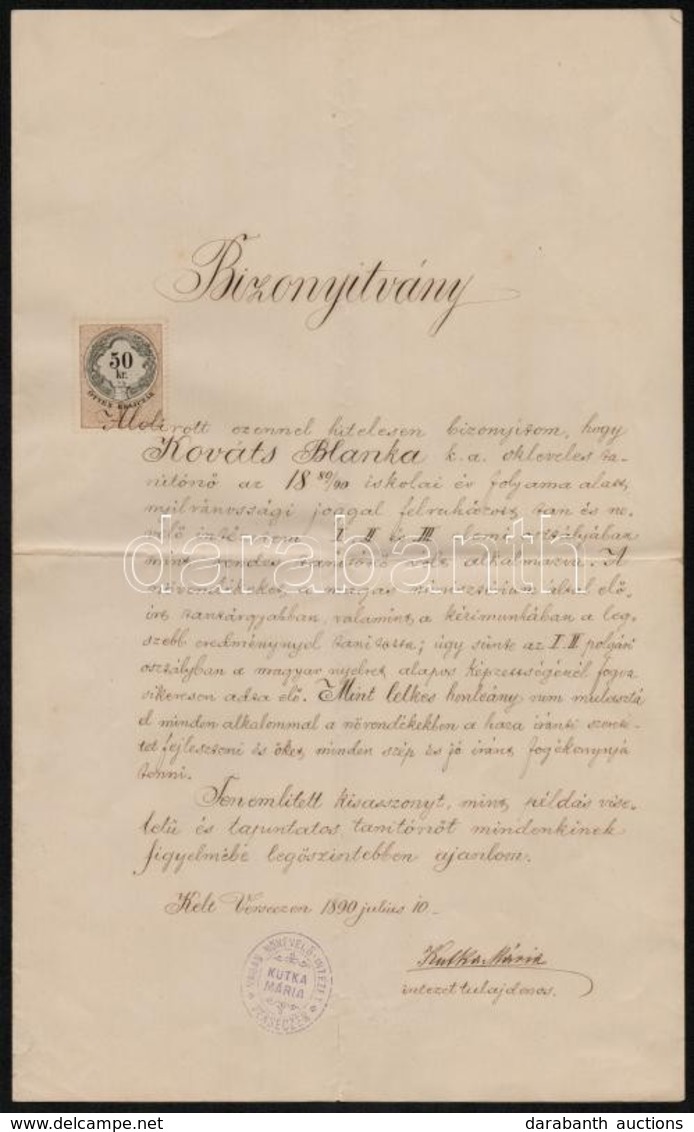 Bizonyitvány
50
kr.
ÖTVEN KRAJCZÁR
Alolirott ezennel hitelesen bizonyitom, hogy
Kováts Blanka k. a. okleveles ta-
nitónő az 18 89/90 iskolai év folyama alatt
nyilvánossági joggal felruházott tan és ne-
velő I. II és III elemi osztályában
mint rendes tanitónő volt alkalmazva. A
növendékeket a magas ministerium által elő-
irt tantárgyakban, valamint a kézimunkában a leg-
szebb eredménynyel tanitotta; úgy szinte az I. II polgári
osztályban a magyar nyelvet alapos képzettségénél fogva
sikeresen adta elő. Mint lelkes honleány nem mulasztá
el minden alkalommal a növendékekben a haza iránti szerete-
tet fejleszteni és őket minden szép és jó iránt fogékonynyá
tenni.
Fenemlitett kisasszonyt, mint példás vise-
letü és tapintatos tanitónőt mindenkinek
figyelmébe legőszintebben ajánlom.
Kelt Verseczen 1890 julius 10.
NŐNEVELŐ-INTÉZET
KUTKA
MÁRIA
VERSECZEN
Kutka Mária
intézet tulajdonos.
darabanth
auctions
darabanth auctions
darabanth.com/hu